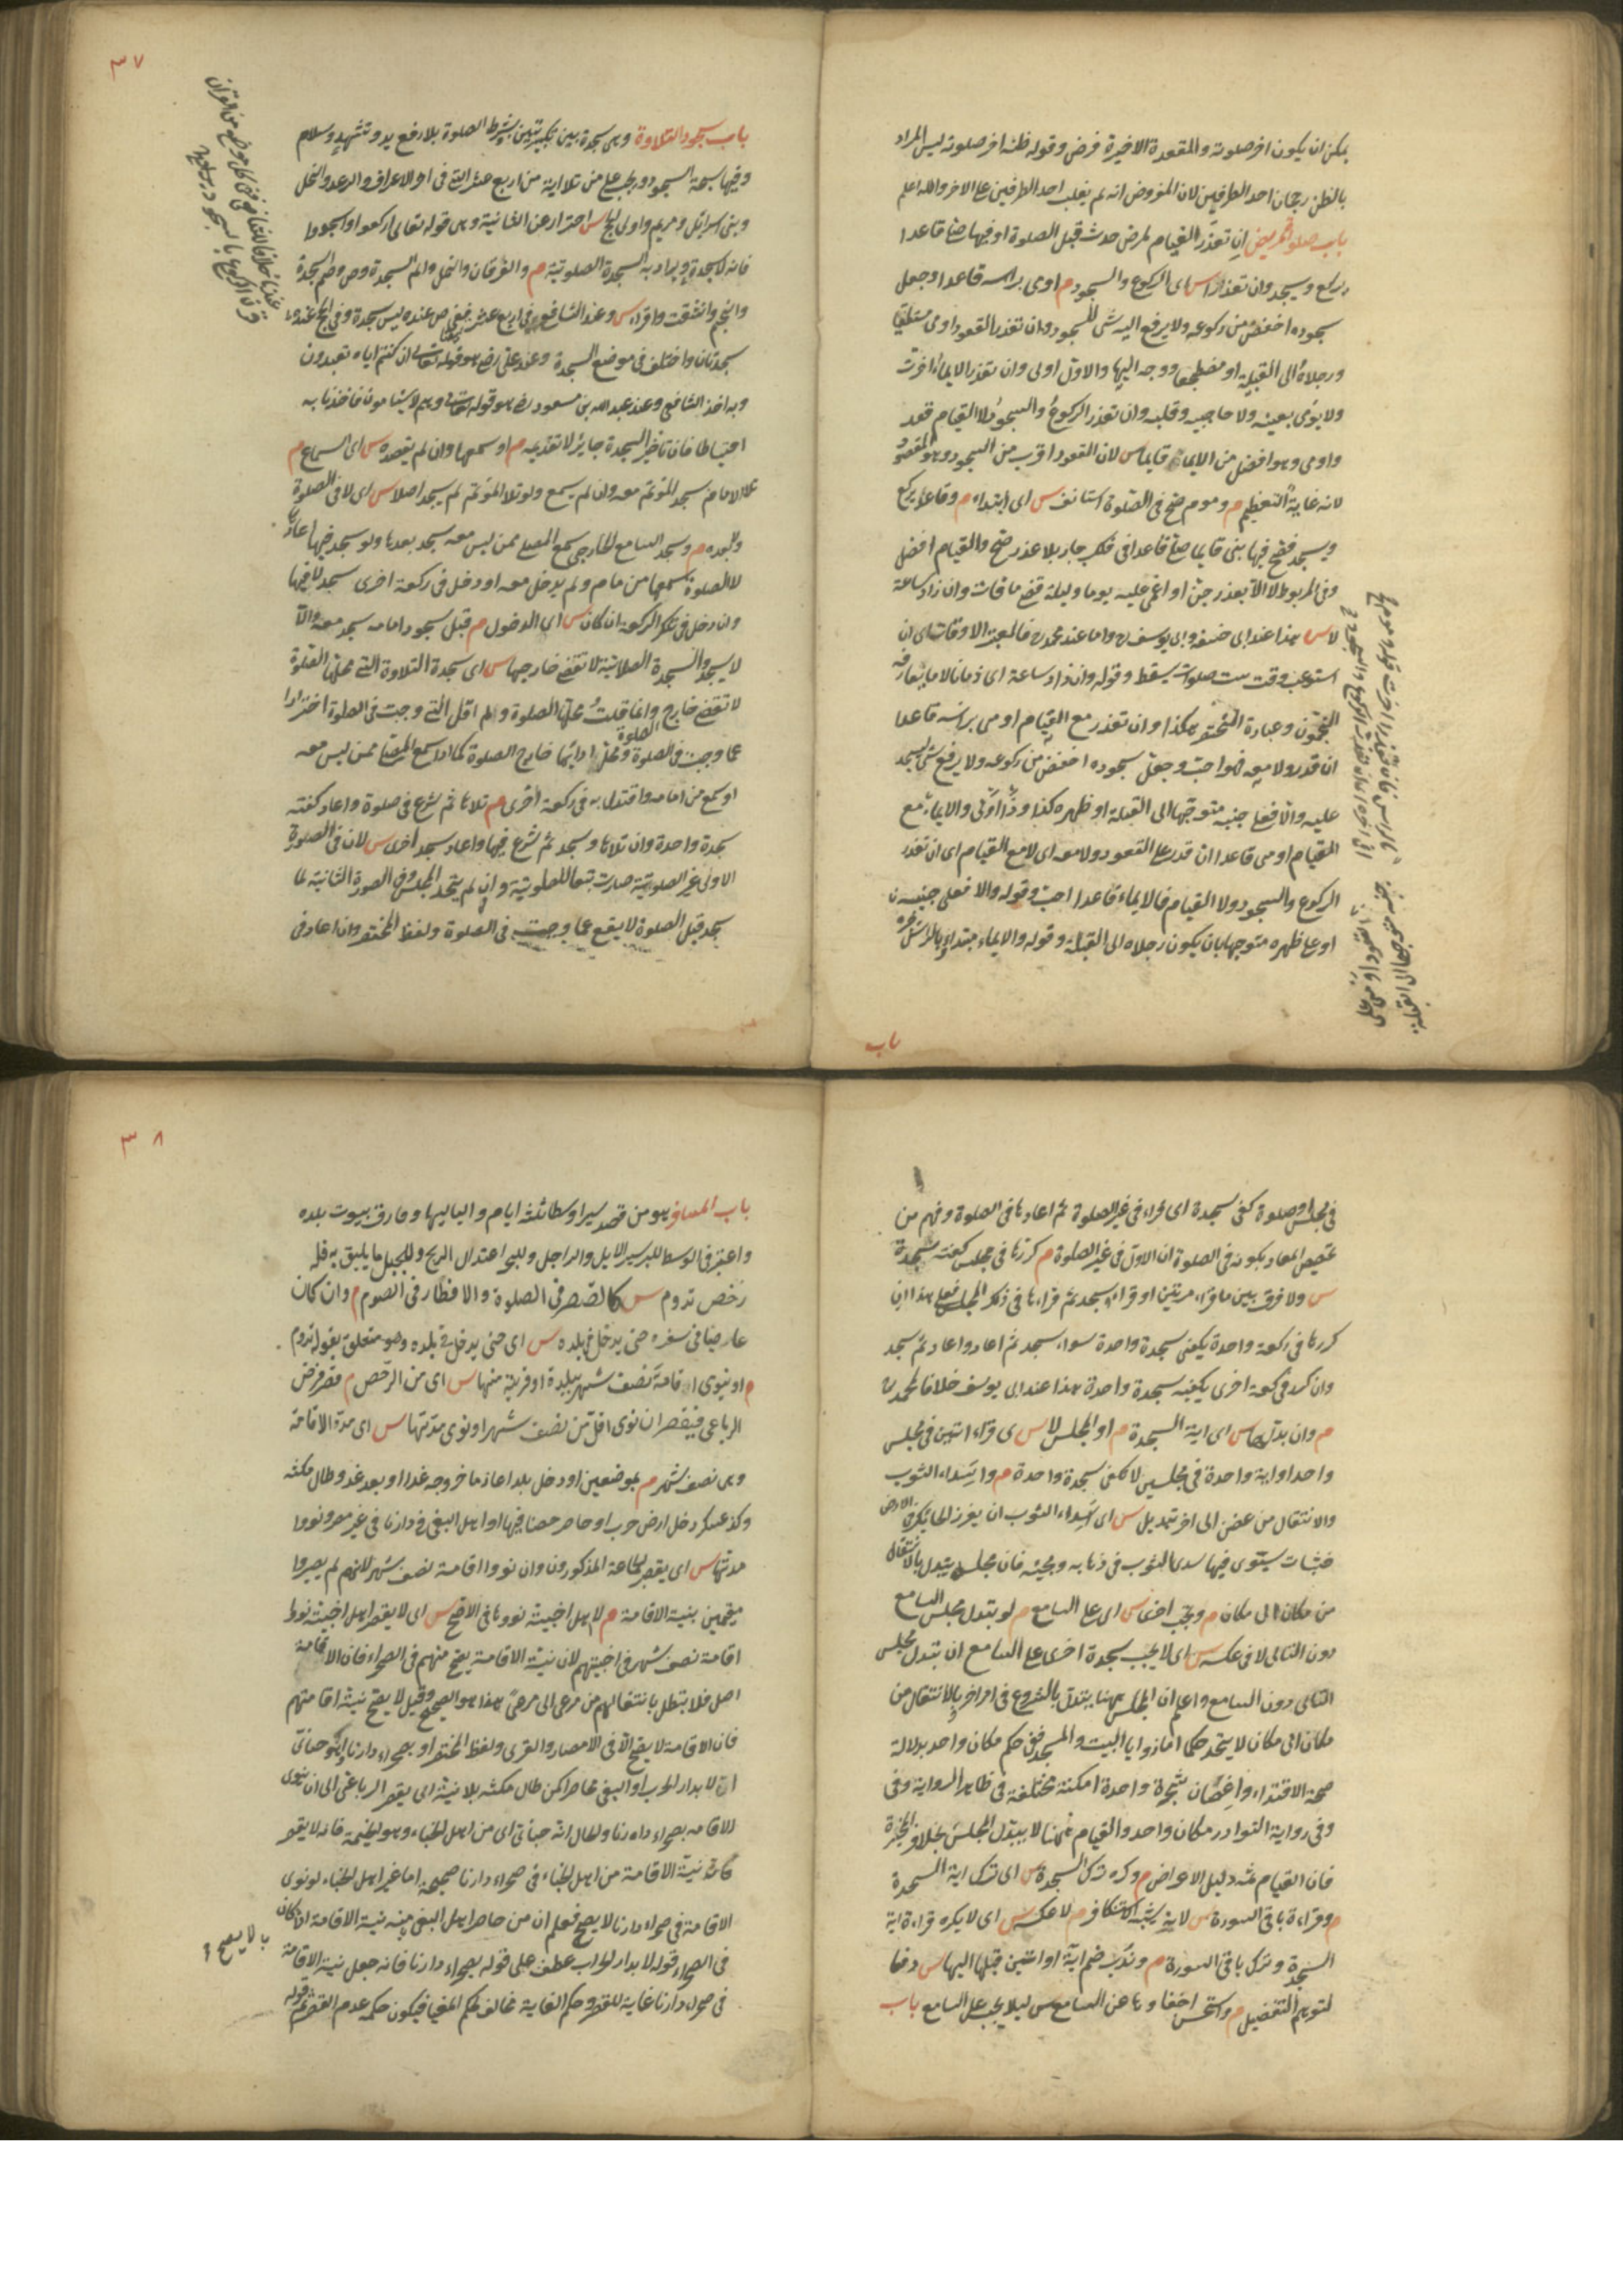 يمكن ان يكون اخر صلوته والقعدة الاخيرة فرض وقوله ظنه اخر صلوته ليس المراد
بالظن رجحان احد الطرفين لان المفروض انه لم يغلب احد الطرفين على الاخر والله اعلم
باب صلوة المريض ان تعذر القيام لمرض حدث قبل الصلوة او فيها صلى قاعدا
يركع ويسجد وان تعذرا س اى الركوع والسجود م اومى براسه قاعدا وجعل
سجوده اخفض من ركوعه ولا يرفع اليه شى للسجود وان تعذر القعود اومى مستلقيا
ورجلاه الى القبلة او مضطجعا ووجهه اليها والاول اولى وان تعذر الايماء اخرت
ولا يومى بعينه ولا حاجبيه وقلبه وان تعذر الركوع والسجود لا القيام قعد
واومى وهو افضل من الايماء قايما س لان القعود اقرب من السجود وهو المقصود
لانه غاية التعظيم م ومومٍ صح فى الصلوة استانف س اى ابتداء م وقاعد يركع
ويسجد فصح فيها بنى قايما صلى قاعدا فى فلك جار بلا عذر صح والقيام افضل
وفى المربوط لا الا بعذر جن او اغمى عليه يوما وليلة قضى ما فات وان زاد ساعة
لا س هذا عند ابى حنيفة وابى يوسف واما عند محمد فالمعتبر الاوقات اى ان
استوعب وقت ست صلوات يسقط وقوله وان زاد ساعة اى زمانا لا ما يتعارفه
المنجمون وعبارة المختصر هكذا وان تعذر مع القيام اومى براسه قاعدا
ان قدر ولا معه فهو احب وجعل سجوده اخفض من ركوعه ولا يرفع شى ليسجد
عليه والا فعلى جنبه متوجها الى القبلة او ظهره كذا وذا اولى والايماء مع
القيام اومى قاعدا ان قدر على القعود ولا معه اى لا مع القيام اى ان تعذر
الركوع والسجود ولا القيام فالايماء قاعدا احب وقوله والا فعلى جنبه
او على ظهره متوجها بان يكون رجلاه الى القبلة وقوله والايماء مبتداء بالراس خبره
باب
٣٧
باب سجود التلاوة وهى سجدة بين تكبيرتين بشرط الصلوة بلا رفع يد وتشهد وسلام
وفيها سبحة السجود ويجب على من تلا اية من اربع عشر التى فى اخر الاعراف والرعد والنحل
وبنى اسرائيل ومريم واولى الحج س احتراز عن الثانية وهى قوله تعالى اركعوا واسجدوا
فانه لا سجدة ويراد به السجدة الصلوتية م والفرقان والنمل والم السجدة وص وحم السجدة
والنجم وانشقت واقراء س وعند الشافعى فى اربع عشر ففى ص عنده ليس سجدة وفى الحج عنده
سجدتان واختلف فى موضع السجدة وعند على رضى هو قوله تعالى ان كنتم اياه تعبدون
وبه اخذ الشافعى وعند عبد الله بن مسعود رض هو قوله تعالى وهم لا يسئمون فاخذنا به
احتياطا فان تاخير السجدة جايز لا تقديمه م او سمعها وان لم يقصده س اى السماع م
تلا الامام سجد الموتم معه وان لم يسمع ولو تلا الموتم لم يسجد اصلا س اى لا فى الصلوة
وبعده م وسجد السامع الخارجى سمع المصلى ممن ليس معه سجد بعدها ولو سجد فيها اعادها
لا الصلوة سمعها من امام ولم يدخل معه او دخل فى ركعة اخرى سجد لا فيها
وان دخل فى تلك الركعة ان كان س اى الدخول م قبل سجود امامه سجد معه والا
لا يسجد والسجدة الصلاتية لا تقضى خارجها س اى سجدة التلاوة التى محلها الصلوة
لا تقضى خارج وانما قلت محلها الصلوة ولم اقل التى وجبت فى الصلوة احترازا
عما وجب فى الصلوة ومحل ادايها خارج الصلوة كما اذا سمع المصلى ممن ليس معه
او سمع من امامه واقتدى به فى ركعة اخرى م تلاها ثم شرع فى صلوة واعاد كفته
سجدة واحدة وان تلاها وسجد ثم شرع فيها واعاد سجد اخرى س لان فى الصورة
الاولى غير الصلوتية صارت تبعا للصلوتية وان لم يتحد المجلس وفى الصورة الثانية لما
سجد قبل الصلوة لا يقع عما وجبت فى الصلوة ولفظ المختصر وان اعاد فى
فى مجلس او صلوة كفى سجدة اى قراء فى غير الصلوة ثم اعادها فى الصلوة وفهم من
تخصيص المعاد بكونه فى الصلوة ان الاول فى غير الصلوة م كررها فى مجلس كفته سجدة
س ولا فرق بين ما قراء مرتين او قراء وسجد ثم قراءها فى ذلك المجلس فعلى هذا ان
كررها فى ركعة واحدة يكفى سجدة واحدة سواء سجد ثم اعاد او اعاد ثم سجد
وان كرر فى ركعة اخرى يكفيه سجدة واحدة هذا عند ابى يوسف خلافا لمحمد
م وان بدلها س اى اية السجدة م او المجلس لا س اى قراء ايتين فى مجلس
واحد او اية واحدة فى مجلسين لا يكفى سجدة واحدة م واسداء الثوب
والانتقال من غصن الى اخر تبديل س اى اسداء الثوب ان يغرز الحايك فى الارض
خشبات يستوى فيها سدى الثوب فى ذهابه ومجيئه فان مجلسه يتبدل بالانتقال
من مكان الى مكان م وتجب اخرى س اى على السامع م لو تبدل مجلس السامع
دون التالى لا فى عكسه س اى لا يجب سجدة اخرى على السامع ان تبدل مجلس
التالى دون السامع واعلم ان المجلس ههنا يتبدل بالشروع فى امر اخر وبالانتقال من
مكان الى مكان لا يتحد حكما اما زوايا البيت والمسجد ففى حكم مكان واحد بدلالة
صحة الاقتداء واغصان شجرة واحدة امكنة مختلفة فى ظاهر الرواية وفى
وفى رواية النوادر مكان واحد والقيام ههنا لا يبدل المجلس بخلاف المخيرة
فان القيام ثمه دليل الاعراض م وكره ترك السجدة س اى ترك اية السجدة
م وقراءة باقى السورة س لانه يشبه الاستنكاف م لا عكسه س اى لا يكره قراءة اية
السجدة وترك باقى السورة م وندب ضم اية او ايتين قبلها اليها س دفعا
لتوهم التفضيل م واستحسن اخفاوها عن السامع س ليلا يجب على السامع باب
٣٨
باب المسافر هو من قصد سيرا وسطا ثلثة ايام ولياليها وفارق بيوت بلده
واعتبر فى الوسط للبر سير الابل والراجل وللبحر اعتدال الريح وللجبل ما يليق به فله
رخص تدوم س كالقصر فى الصلوة والافطار فى الصوم م وان كان
عاصيا فى سفره حتى يدخل بلده س اى حتى يدخل فى بلده وهو متعلق بقوله تدوم
م او ينوى اقامة نصف شهر ببلدة او قرية منها س اى من الرخص م قصر فرض
الرباعى فيقصر ان نوى اقل من نصف شهر او نوى مدتها س اى مدة الاقامة
وهى نصف شهر م بموضعين او دخل بلدا عازما خروجه غدا او بعد غد وطال مكثه
وكذا عسكر دخل ارض حرب او حاصر حصنا فيها او اهل البغى فى دارنا فى غير مصر ونووا
مدتها س اى يقصر الجماعة المذكورون وان نووا اقامة نصف شهر لانهم لم يصيروا
مقيمين بنية الاقامة م لا اهل اخبية نووها فى الاصح س اى لا يقصر اهل اخبية نووا
اقامة نصف شهر فى اخبيتهم لان نية الاقامة يصح منهم فى الصحراء فان الاقامة
اصل فلا تبطل بانتقالهم من مرعى الى مرعى هذا هو الصحيح وقيل لا يصح نية اقامتهم
فان الاقامة لا يصح الا فى الامصار والقرى ولفظ المختصر او بصحراء دارنا وهو خبائى
اى لا بدار الحرب او البغى محاصرا كمن طال مكثه بلا نية اى يقصر الرباعى الى ان ينوى
الاقامة بصحراء دارنا والحال انه خبائى اى من اهل الخباء وهو الخيمة فانه لا يقصر
فان نية الاقامة من اهل الخباء فى صحراء دارنا صحيحة اما غير اهل الخباء لو نوى
الاقامة فى صحراء دارنا لا يصح فعلم ان من حاصر اهل البغى منه نية الاقامة اذا كان
لا يصح
فى الصحراء قوله لا بدار الحرب عطف على قوله بصحراء دارنا فانه جعل نية الاقامة
فى صحراء دارنا غاية للقصر وحكم الغاية مخالف لحكم المغيا فيكون حكمه عدم القصر ثم قوله